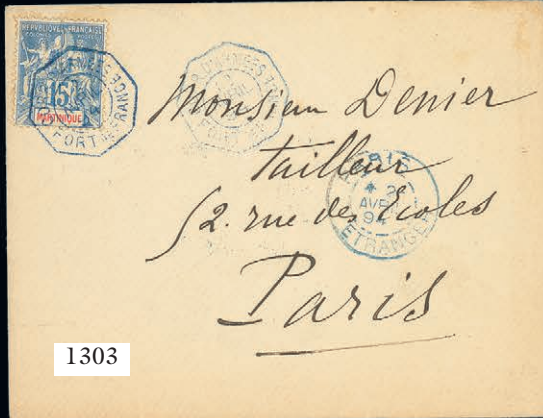 REPUBLIQUE FRANCAISE
COLONIES
15
MARTINIQUE
FORT
FRANCE
Monsieur Denier
tailleur
52. rue des Ecoles
Paris
PARIS
AVRIL
94
ETRANGER
1303